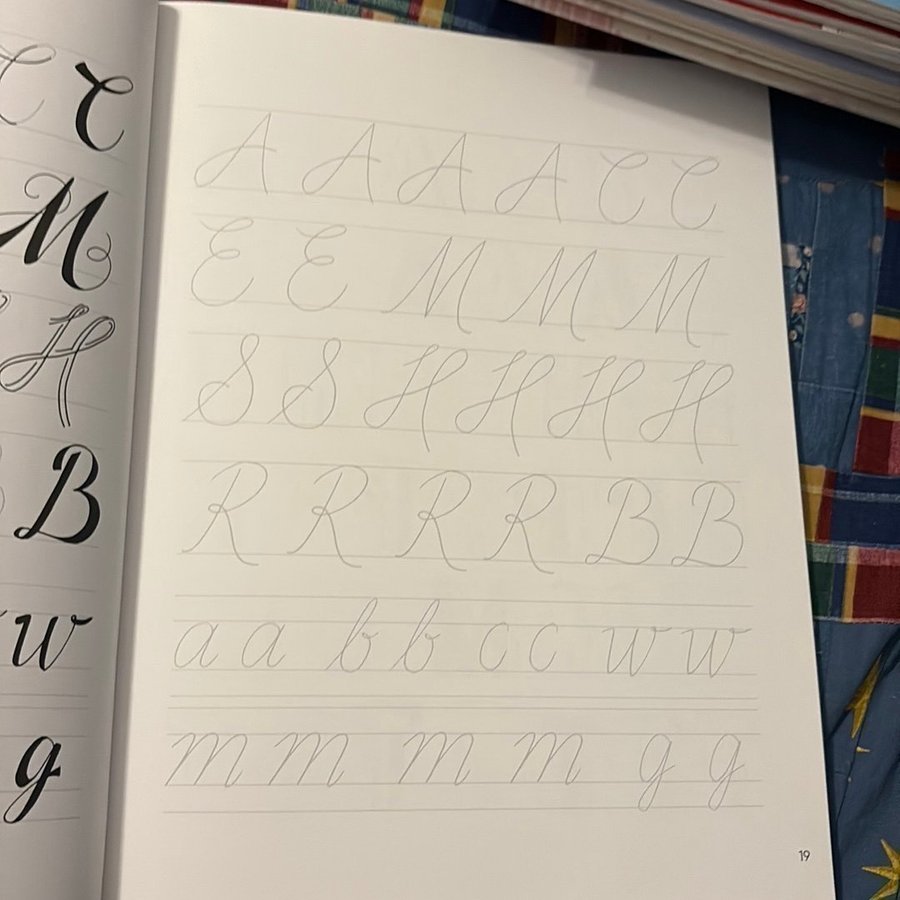 C C
M
H
B
w
g
A A A A C C
E E M M M
S S H H H H
R R R R B B
a a b b c c w w
m m m m g g
19